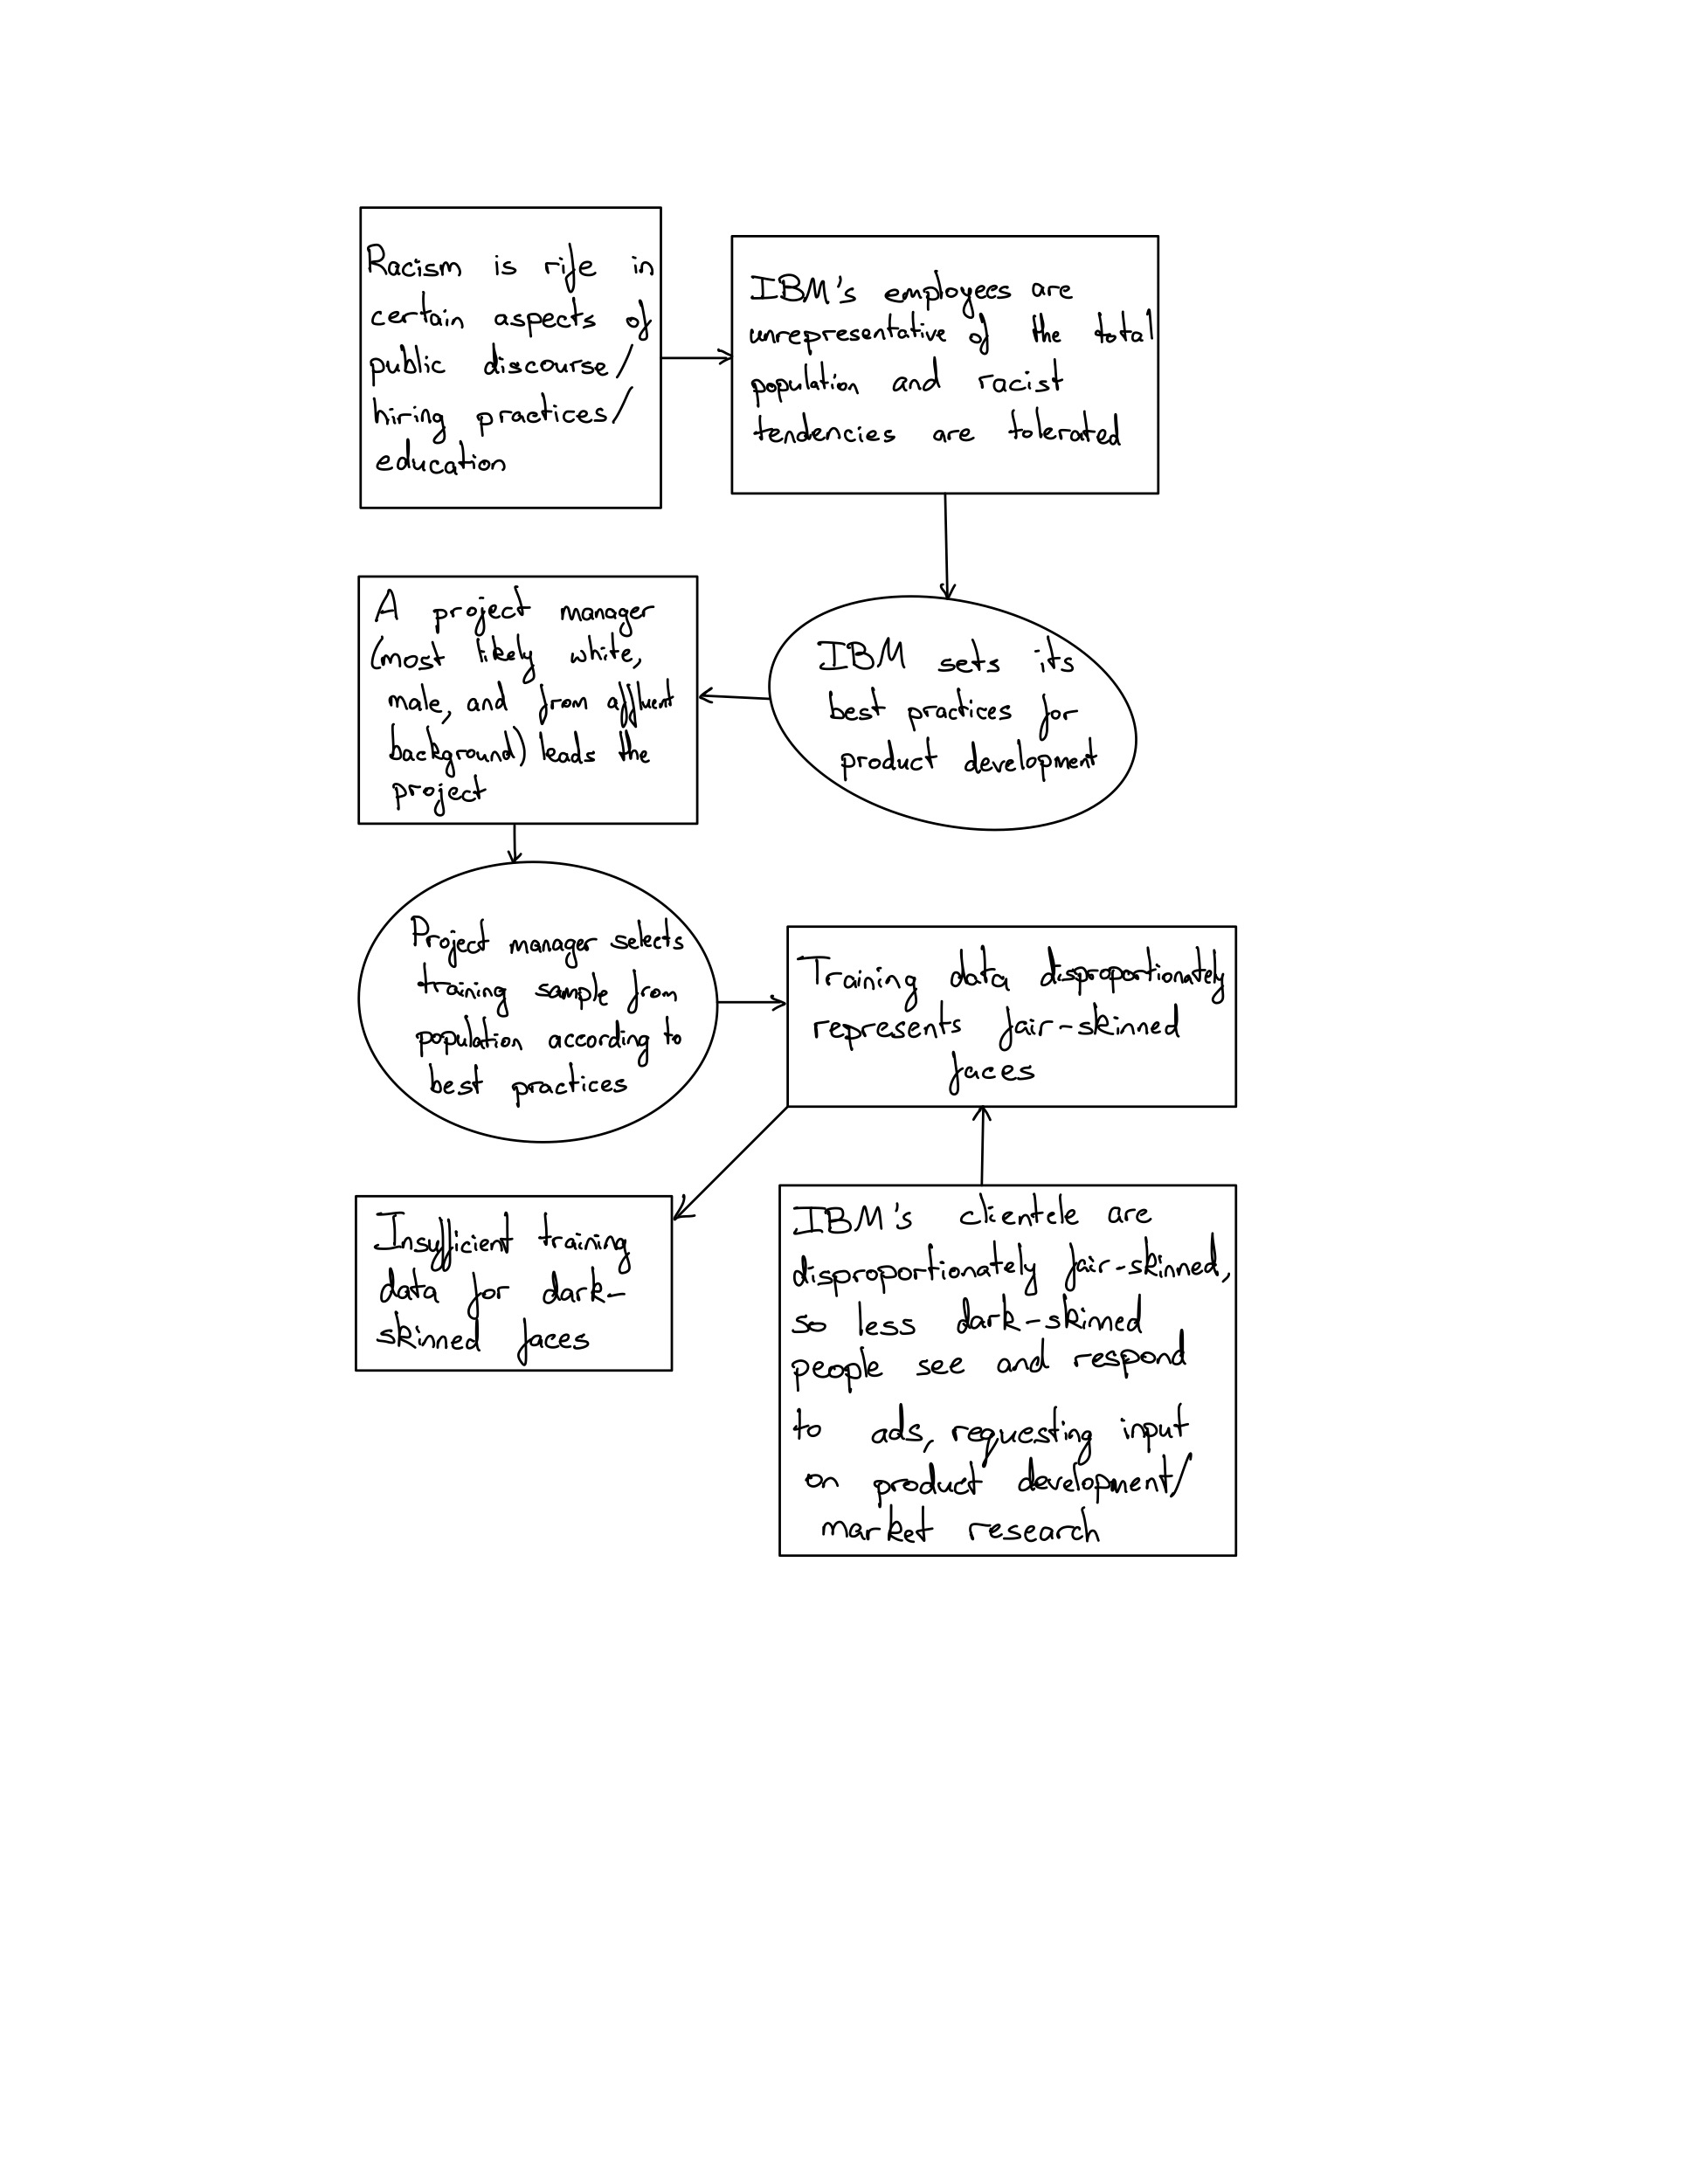 Racism is rife in
certain aspects of
public discourse/
hiring practices/
education
IBM's employees are
unrepresentative of the total
population and racist
tendencies are tolerated
IBM sets its
best practices for
product development
A project manager
(most likely white,
male, and from affluent
background) leads the
project
Project manager selects
training sample from
population according to
best practices
Training data disproportionately
represents fair-skinned
faces
IBM's clientele are
disproportionately fair-skinned,
so less dark-skinned
people see and respond
to ads, requesting input
on product development/
market research
Insufficient training
data for dark-
skinned faces